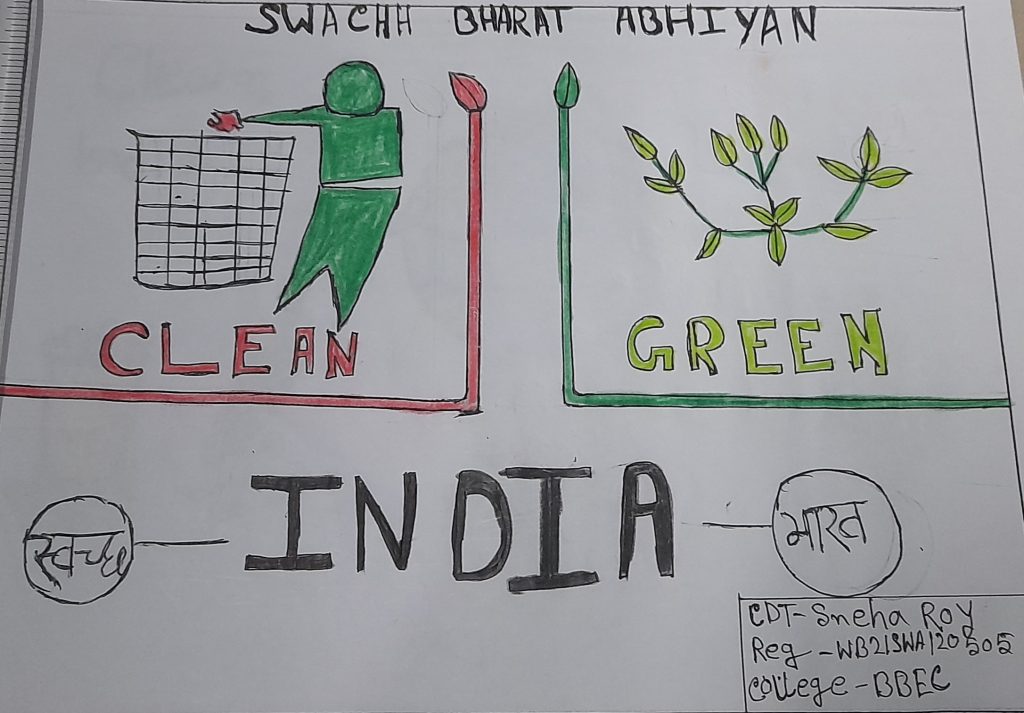 SWACHH BHARAT ABHIYAN
CLEAN
GREEN
INDIA
स्वच्छ
भारत
CDT-Sneha Roy
Reg-WB21SWA120505
College-BBEC